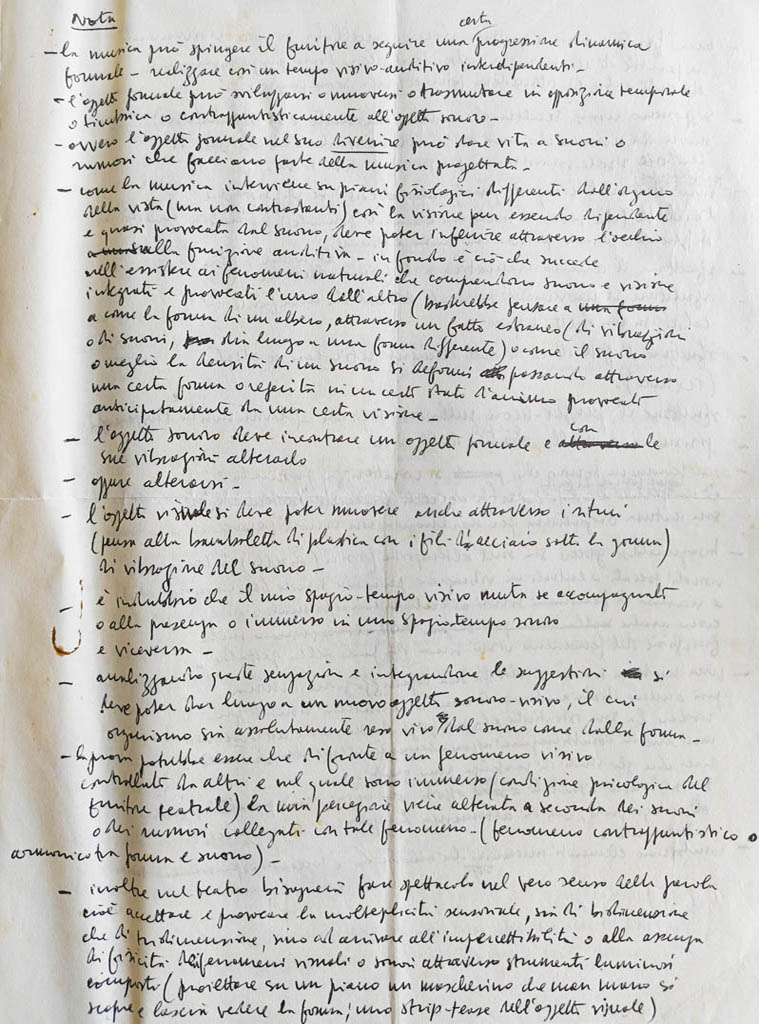 Nota
certa
– la musica può spingere il fruitore a seguire una progressione dinamica
formale – realizzare così un tempo visivo-auditivo interdipendenti –
– l'oggetto formale può svilupparsi o muoversi o trasmutare in opposizione temporale
o timbrica o contrappuntisticamente all'oggetto sonoro –
– ovvero l'oggetto formale nel suo divenire può dare vita a suoni o
rumori che facciano parte della musica progettata –
– come la musica interviene su piani fisiologici differenti dall'organo
della vista (ma non contrastanti) così la visione pur essendo dipendente
e quasi provocata dal suono, deve poter influire attraverso l'occhio
alla funzione auditiva – in fondo è ciò che succede
nell'esistere dei fenomeni naturali che comprendono suono e visione
integrati e provocati l'uno dall'altro (basterebbe pensare a una forma
a come la forma di un albero, attraverso un fatto estraneo (di vibrazioni
o di suoni, dia luogo a una forma differente) o come il suono
o meglio la densità di un suono si deformi passando attraverso
una certa forma o recepita in un certo stato d'animo provocato
anticipatamente da una certa visione –
– l'oggetto sonoro deve incontrare un oggetto formale e con le
sue vibrazioni alterarlo
– oppure alterarsi –
– l'oggetto visuale si deve poter muovere anche attraverso i ritmi
(pensa alla bamboletta di plastica con i fili d'acciaio sotto la gonna)
di vibrazione del suono –
– è indubbio che il mio spazio-tempo visivo muta se accompagnato
o alla presenza o immerso in uno spazio-tempo sonoro
e viceversa –
– analizzando queste sensazioni e integrandone le suggestioni si
deve poter dar luogo a un nuovo oggetto sonoro-visivo, il cui
organismo sia assolutamente reso vivo dal suono come dalla forma –
– la prova potrebbe essere che di fronte a un fenomeno visivo
controllato da altri e nel quale sono immerso (condizione psicologica del
fruitore teatrale) la mia percezione viene alterata a seconda dei suoni
o dei rumori collegati con tale fenomeno – (fenomeno contrappuntistico o
armonico tra forma e suono) –
– inoltre nel teatro bisognerà fare spettacolo nel vero senso della parola
cioè accettare e provocare la molteplicità sensoriale, sia di bidimensione
che di tridimensione, sino ad arrivare all'impercettibilità o alla assenza
di fisicità dei fenomeni visuali o sonori attraverso strumenti luminosi
composti (proiettare su un piano un mascherino che man mano si
scopre e lascia vedere la forma; uno strip-tease dell'oggetto visuale)